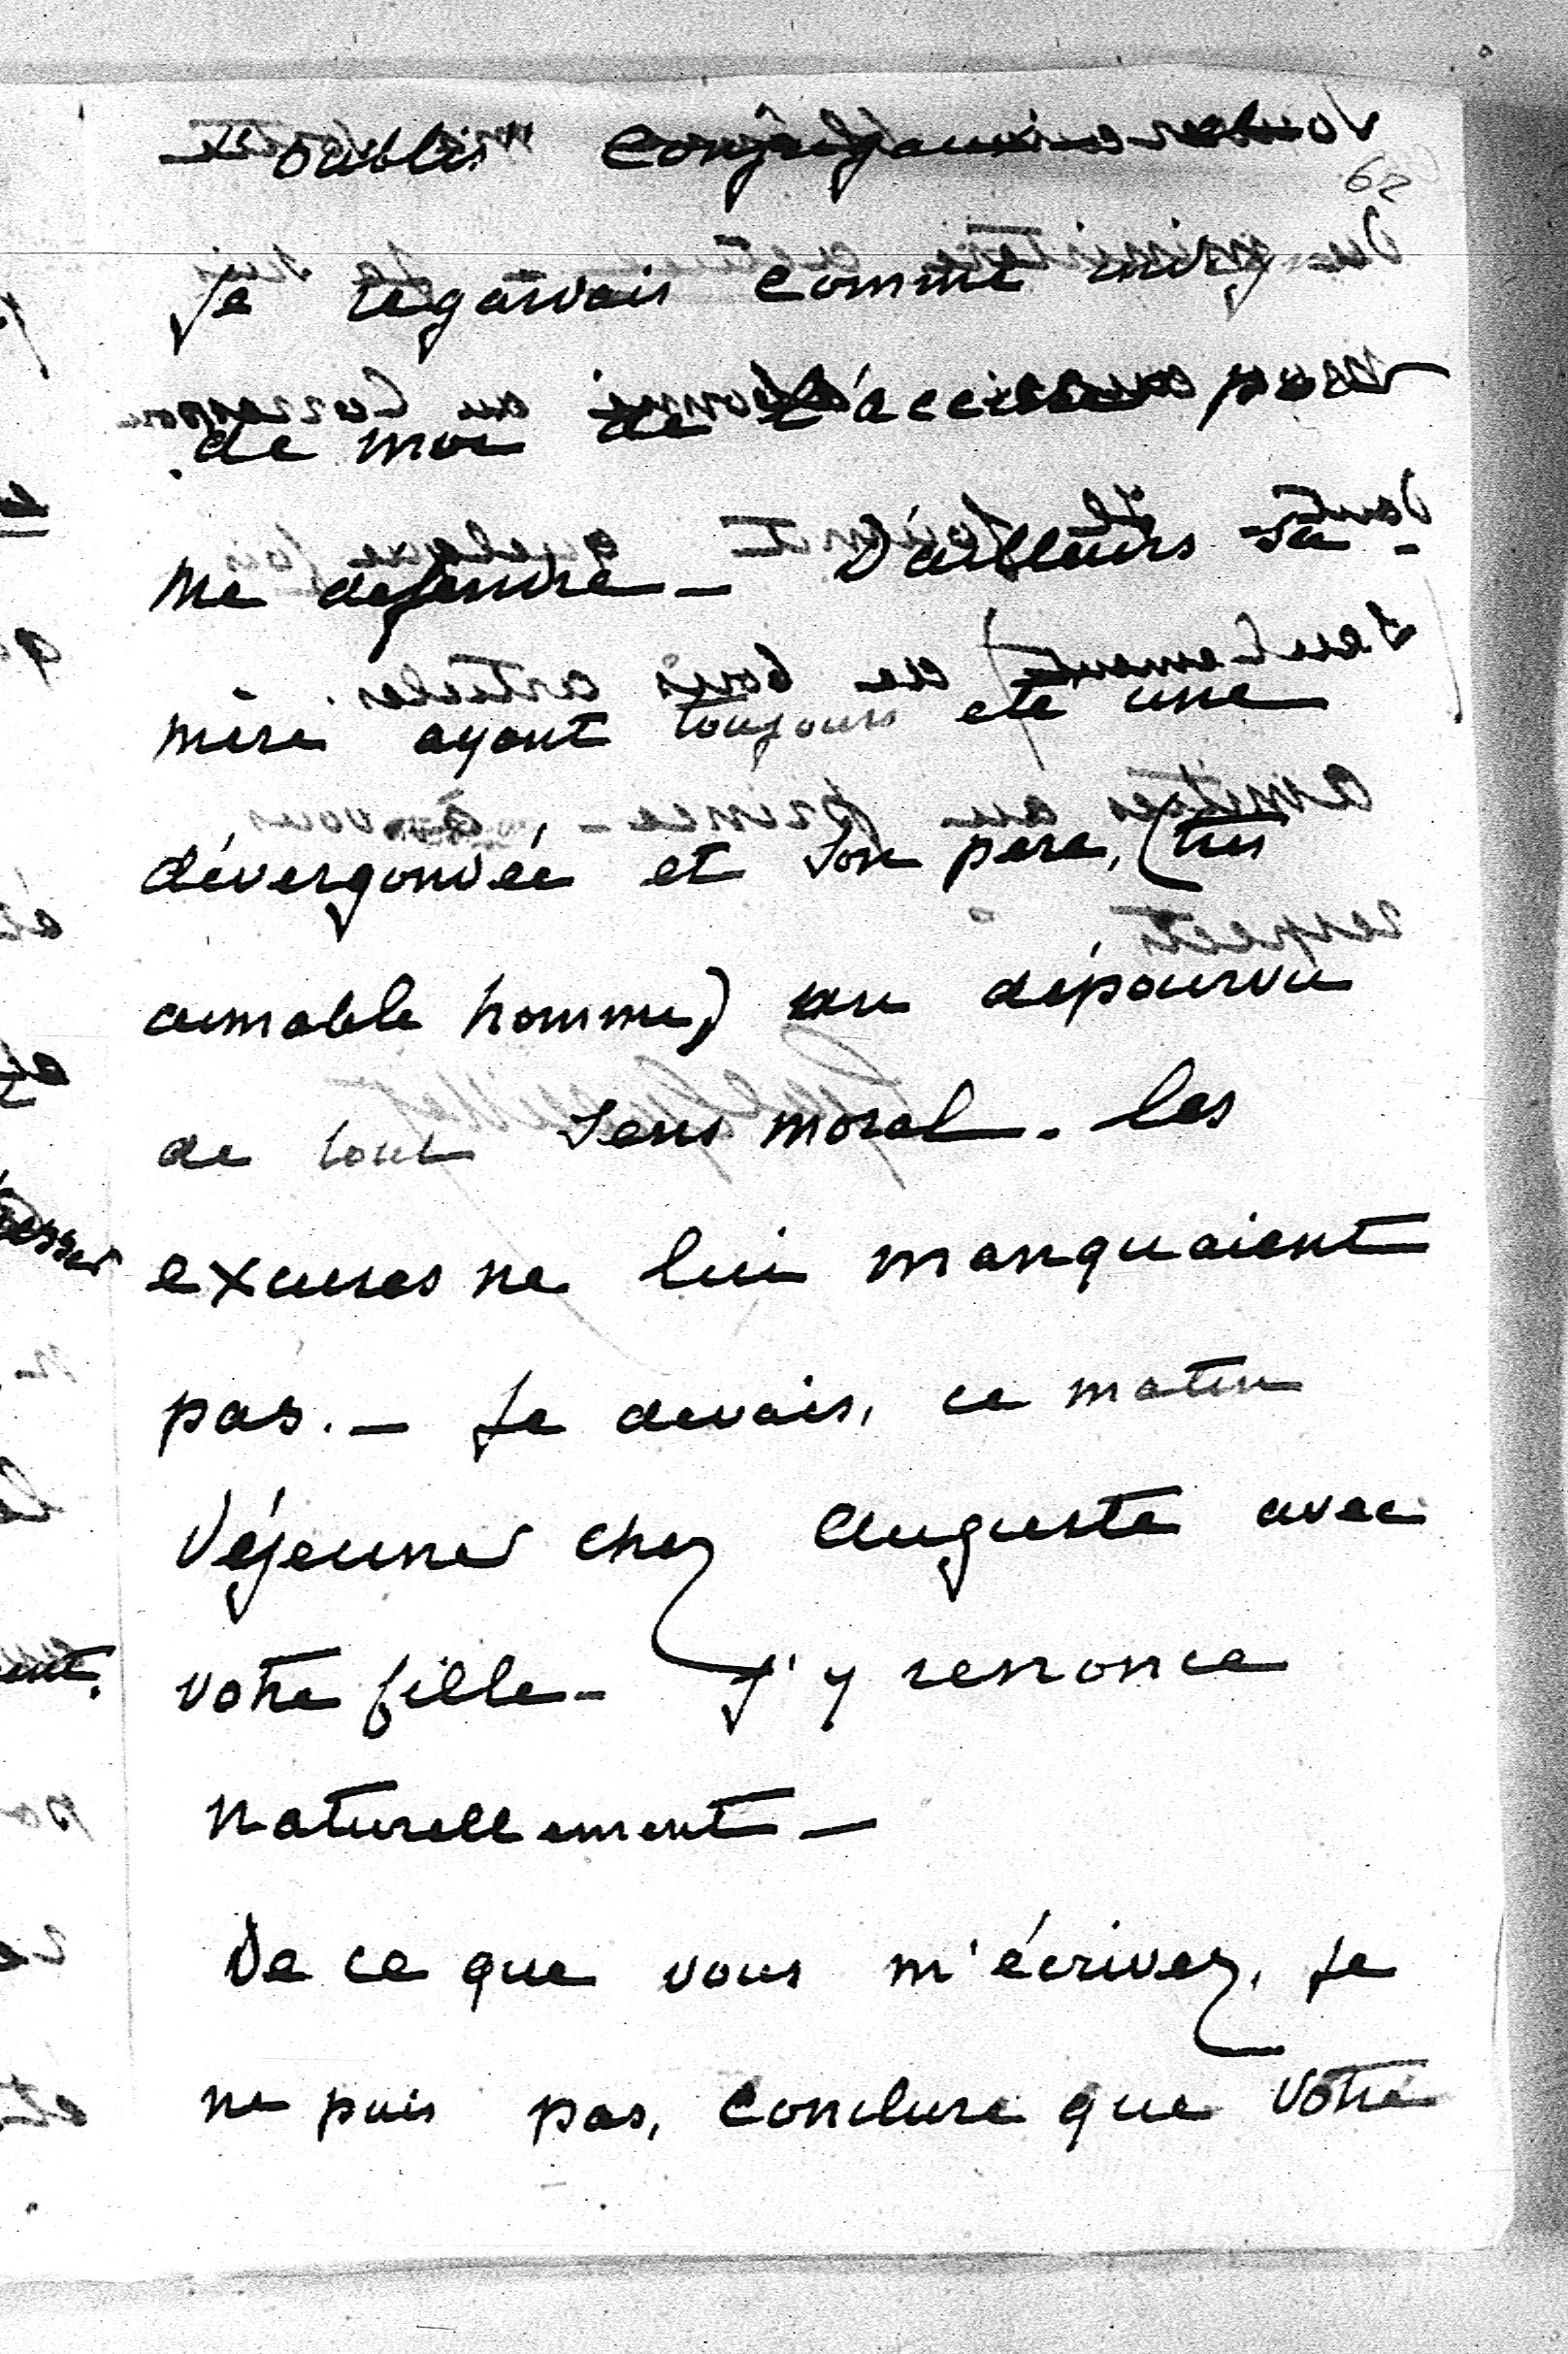 "oublis" conjugaux
62
je regardais comme indigne
de moi de l'accuser pour
me defendre — D'ailleurs sa
mère ayant toujours eté une
dévergondée et son père, (très
aimable homme) un dépourvu
de tout sens moral. les
excuses ne lui manquaient
pas. — Je devais, ce matin
Déjeuner chez Auguste avec
votre fille — J'y renonce
naturellement —
De ce que vous m'écrivez, Je
ne puis pas, conclure que Votre